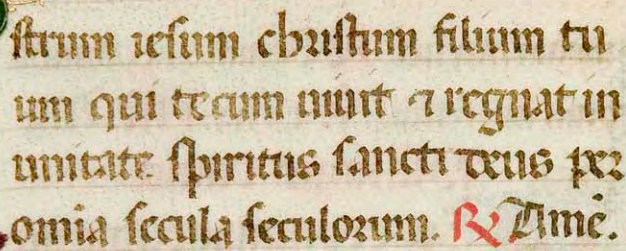 strum iesum christum filium tu
um qui tecum uiuit ⁊ regnat in
unitate spiritus sancti deus per
omnia secula seculorum. ℟ Amē.